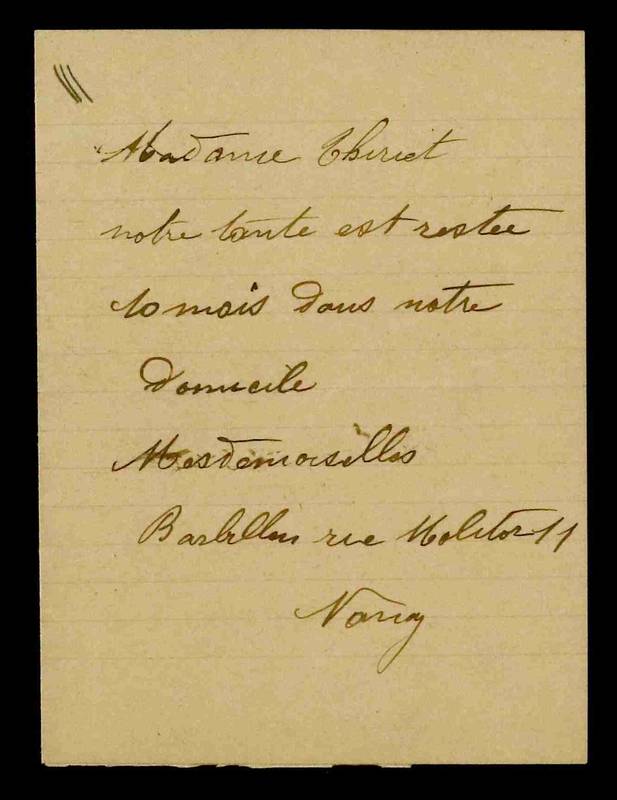 Madame Thiriet
notre tante est restée
10 mois dans notre
domicile
Mesdemoiselles
rue Molitor 11
Nancy